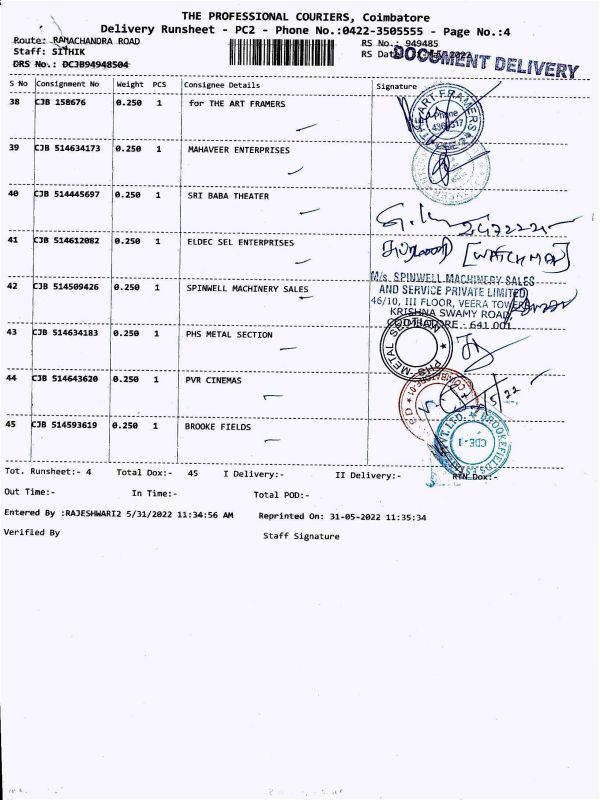 THE PROFESSIONAL COURIERS, Coimbatore
Delivery Runsheet - PC2 - Phone No.:0422-3505555 - Page No.:4
Route: RAMACHANDRA ROAD
RS No.: 949485
Staff: SITHIK
RS Date
DOCUMENT DELIVERY
DRS No.: DCJB94948504
S No Consignment No Weight PCS Consignee Details Signature
38 CJB 158676 0.250 1 for THE ART FRAMERS
ART FRAMERS
Phone
39 CJB 514634173 0.250 1 MAHAVEER ENTERPRISES
40 CJB 514445697 0.250 1 SRI BABA THEATER
41 CJB 514612082 0.250 1 ELDEC SEL ENTERPRISES
[WATCHMAN]
42 CJB 514509426 0.250 1 SPINWELL MACHINERY SALES
M/s. SPINWELL MACHINERY SALES
AND SERVICE PRIVATE LIMITED
46/10, III FLOOR, VEERA TOWERS
KRISHNA SWAMY ROAD,
COIMBATORE - 641 001
43 CJB 514634183 0.250 1 PHS METAL SECTION
PHS METAL SECTION
44 CJB 514643620 0.250 1 PVR CINEMAS
45 CJB 514593619 0.250 1 BROOKE FIELDS
CBE-1
Tot. Runsheet:- 4 Total Dox:- 45 I Delivery:- II Delivery:- RTN Dox:-
Out Time:- In Time:- Total POD:-
Entered By :RAJESHWARI2 5/31/2022 11:34:56 AM Reprinted On: 31-05-2022 11:35:34
Verified By Staff Signature